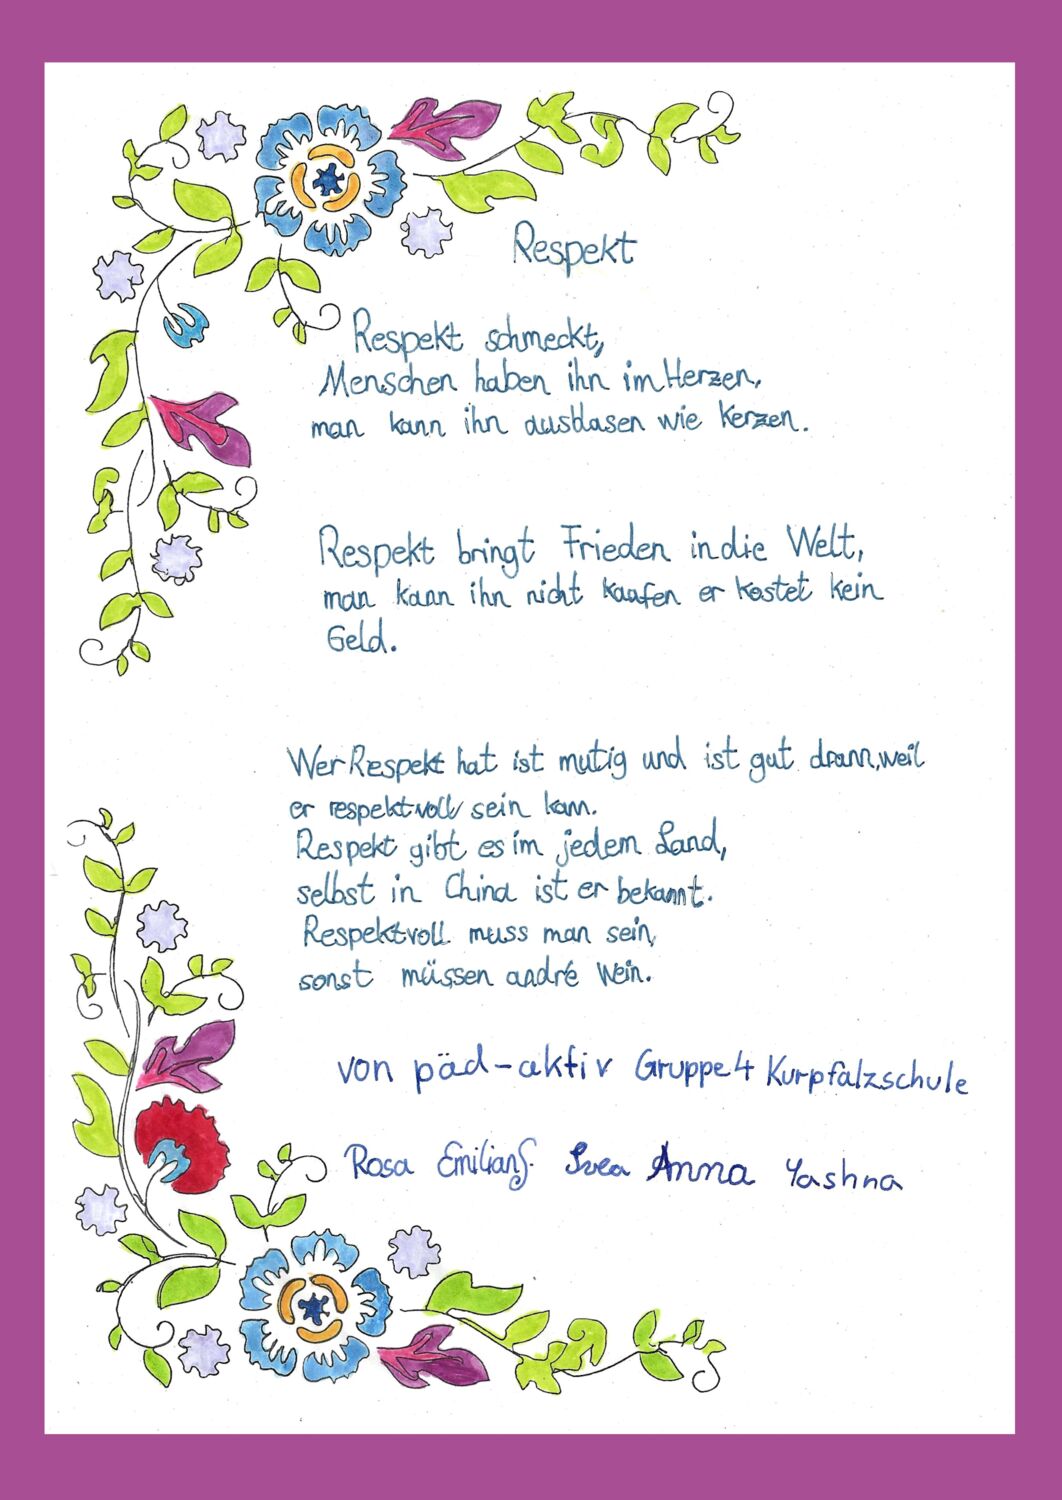 Respekt
Respekt schmeckt,
Menschen haben ihn im Herzen,
man kann ihn ausblasen wie Kerzen.
Respekt bringt Frieden in die Welt,
man kann ihn nicht kaufen er kostet kein
Geld.
Wer Respekt hat ist mutig und ist gut drann, weil
er respektvoll sein kann.
Respekt gibt es im jedem Land,
selbst in China ist er bekannt.
Respektvoll muss man sein,
sonst müssen andré Wein.
von päd-aktiv Gruppe 4 Kurpfalzschule
Rosa Emilian S. Svea Anna Yashna